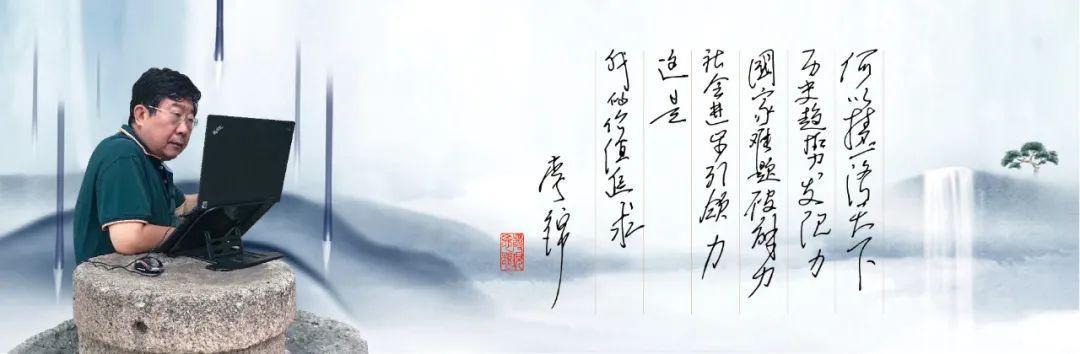 何以天下
历史趋势发现力
國家难题破解力
社会進步引领力
这是
我们价值追求
李锦